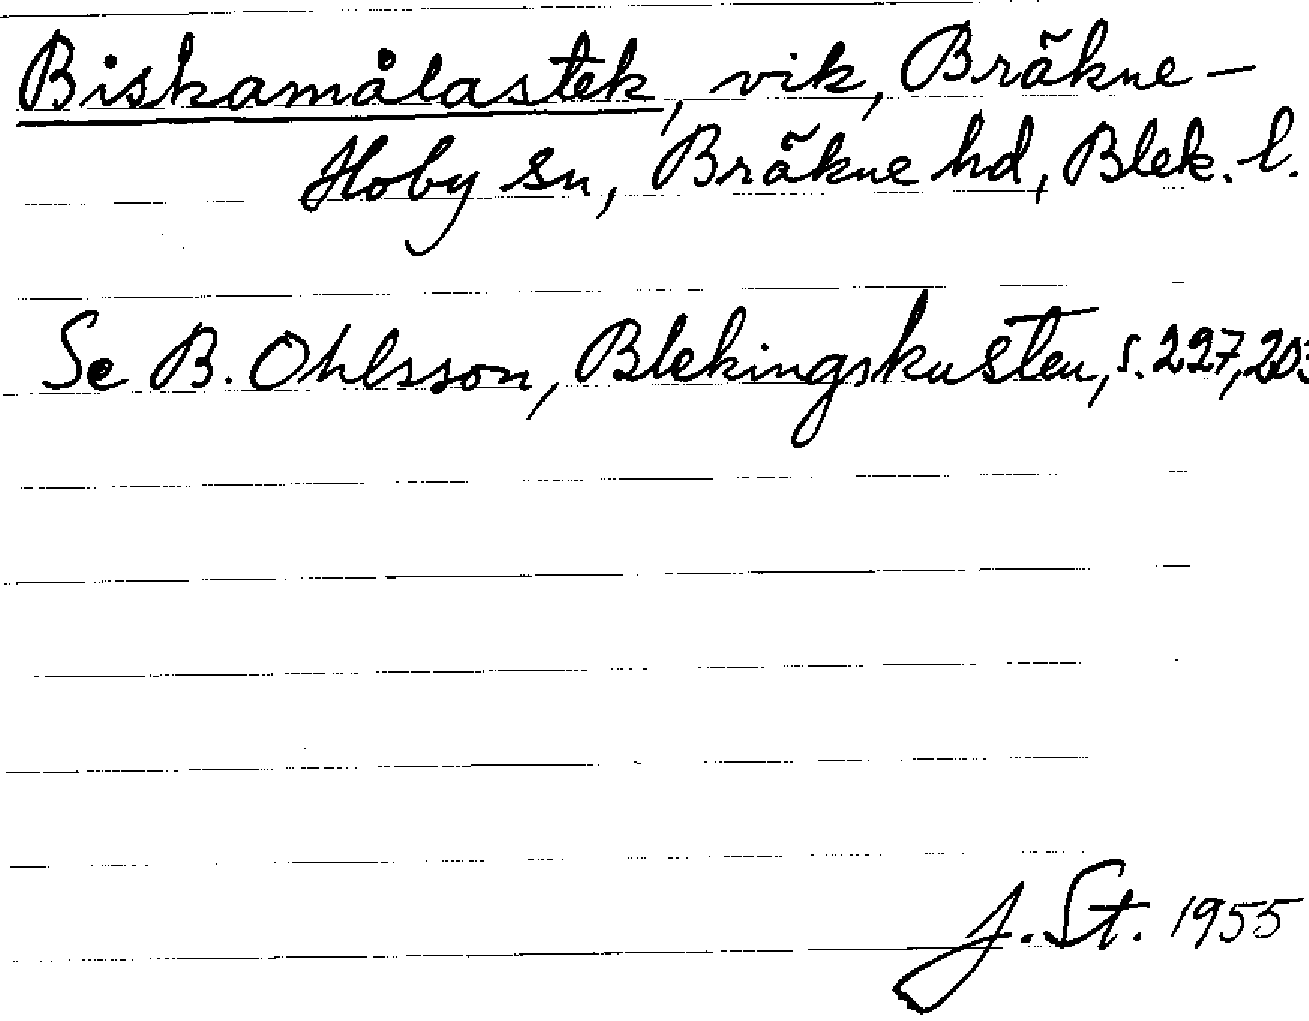 Biskamålastek, vik, Bräkne-
Hoby sn, Bräkne hd, Blek. l.
Se B. Ohlsson, Blekingskusten, s. 227, 203
J. St. 1955